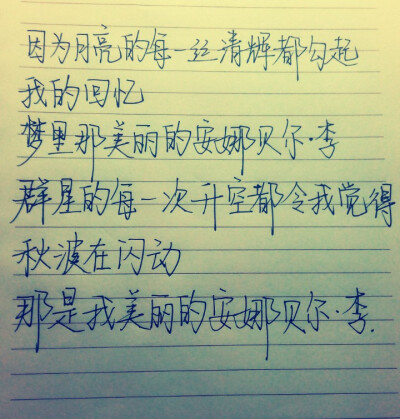 因为月亮的每一丝清辉都勾起
我的回忆
梦里那美丽的安娜贝尔·李
群星的每一次升空都令我觉得
秋波在闪动
那是我美丽的安娜贝尔·李.